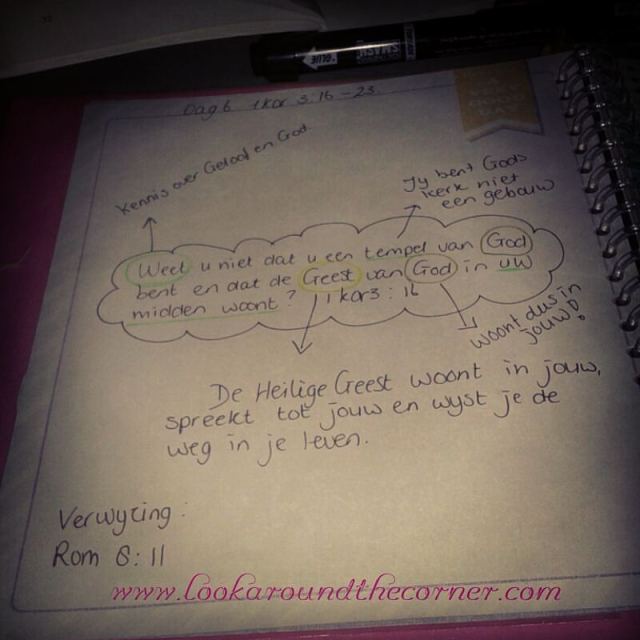 Dag 6 1 kor 3:16-23
Kennis over Geloof en God
Jy bent Gods
kerk niet
een gebouw
Weet u niet dat u een tempel van God
bent en dat de Geest van God in uw
midden woont? 1 kor 3:16
Woont dus in
jouw!
De Heilige Geest woont in jouw,
spreekt tot jouw en wyst je de
weg in je leven.
Verwyzing:
Rom 8:11
www.lookaroundthecorner.com